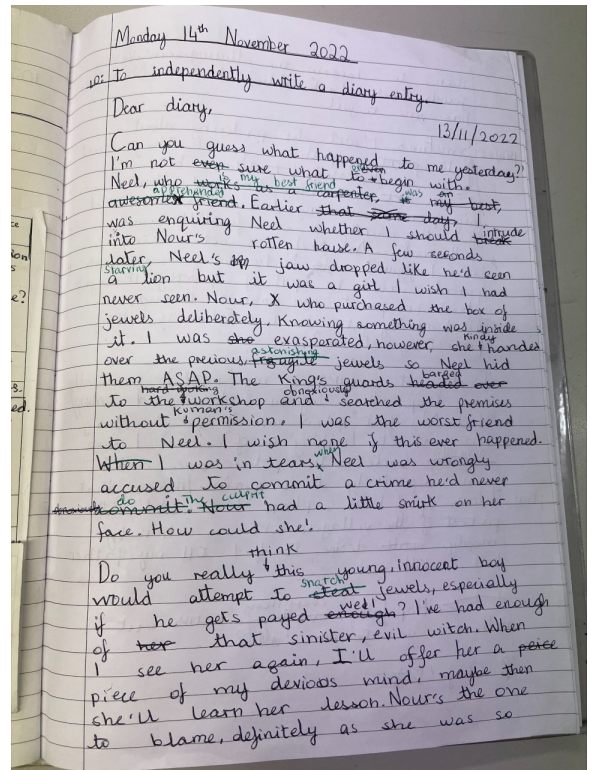 Monday 14th November 2022
LO: To independently write a diary entry.
Dear diary,
13/11/2022
Can you guess what happened to me yesterday?
I'm not even sure what to even begin with.
Neel, who works as is my best friend carpenter, is was my an best,
awesome apprehended friend. Earlier that same day, I
was enquiring Neel whether I should break intrude
into Nour's rotten house. A few seconds
later, Neel's jaw dropped like he'd seen
a starving lion but it was a girl I wish I had
never seen. Nour, X who purchased the box of
jewels deliberately. Knowing something was inside
it. I was she exasparated, however, she kindly handed
over the previous, fragile astonishing jewels so Neel hid
them ASAP. The King's guards headed over barged
to the hard-working workshop and obnoxiously searched the premises
without Kuman's permission. I was the worst friend
to Neel. I wish none if this ever happened.
When I was in tears, when Neel was wrongly
accused to commit a crime he'd never
commit. do Nour The culprit had a little smirk on her
face. How could she!
Do you really think this young, innocent boy
would attempt to steal snatch jewels, especially
if he gets payed enough well? I've had enough
of her that sinister, evil witch. When
I see her again, I'll offer her a peice
piece of my devious mind, maybe then
she'll learn her lesson. Nour's the one
to blame, definitely as she was so
e?
s.
ed.